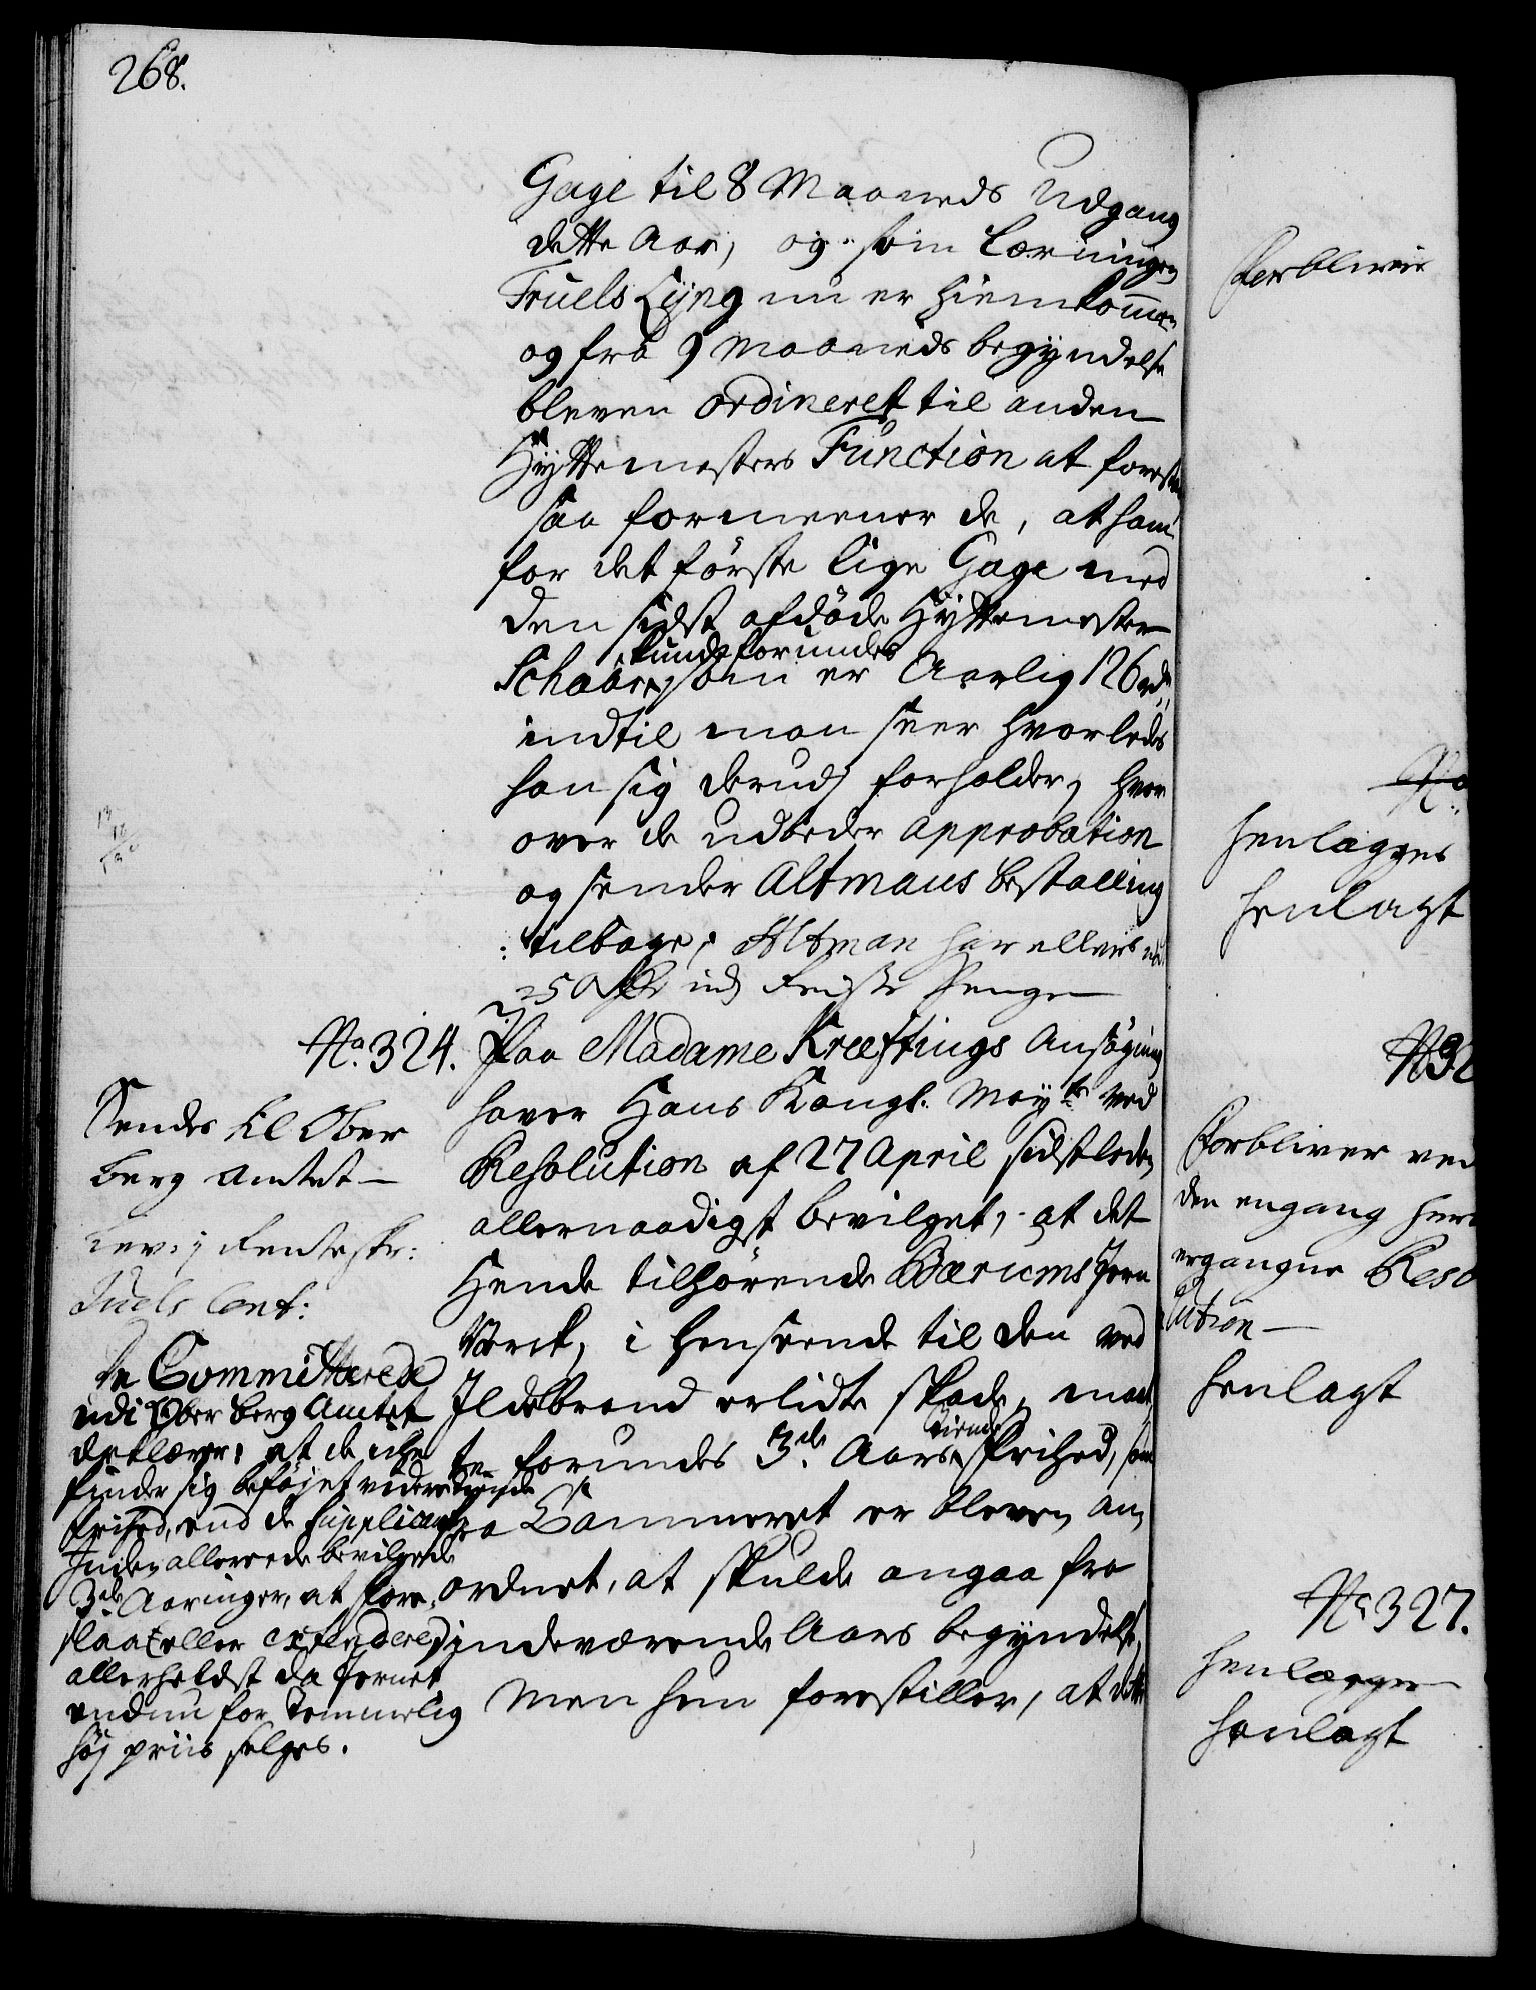 268.
Gage til 8 Maaneds Udgang
dette Aar, og som Lærningen
Truels Lyng nu er hiemkommen
og fra 9 Maaneds begyndelse
bleven ordineret til anden
Hyttemesters Function at forestaae
saa formeener de, at ham
for det første lige Gage med
den sidst afdøde Hyttemester
kunde forundes
Schaar, som er Aarlig 126 rdr,
indtil man seer hvorledes
han sig derudj forholder, hvor
over de udbeder approbation
og sender Altmans bestalling
tilbage; Altman har ellers
250 Rdr udj Penge
No. 324. Paa Madame Kræftings Ansøgning
haver Hans Kongl. Mayts ved
Resolution af 27 April sidstleden
allernaadigst bevilget, at det
Hende tilhørende Bærums Jern
Værck, i henseende til den ved
Ildebrand erlidte skade, maat
tiende
te forundes 3de Aars Frihed, som
fra Cammeret er bleven an
ordnet, at skulde angaa fra
indeværende Aars begyndelse,
Men hun forestiller, at dette
Sendes til Ober
Berg Amtet
Juels Cont:
De Committerede
udi Ober Berg Amtet
declarer, at de icke
finder sig beføjet videre tiende
frihed, end de Supplicant
inden allereede bevilgede
3de Aaringer, at fore
slaae eller extendere,
allerheldst da Jernet
endnu for temmelig
høj priis selges.
forbliver
No.
henlægges
henlagt
No 32
Forbliver ved
den engang her
ergangne Reso
lution
henlagt
No 327.
henlægges
henlagt